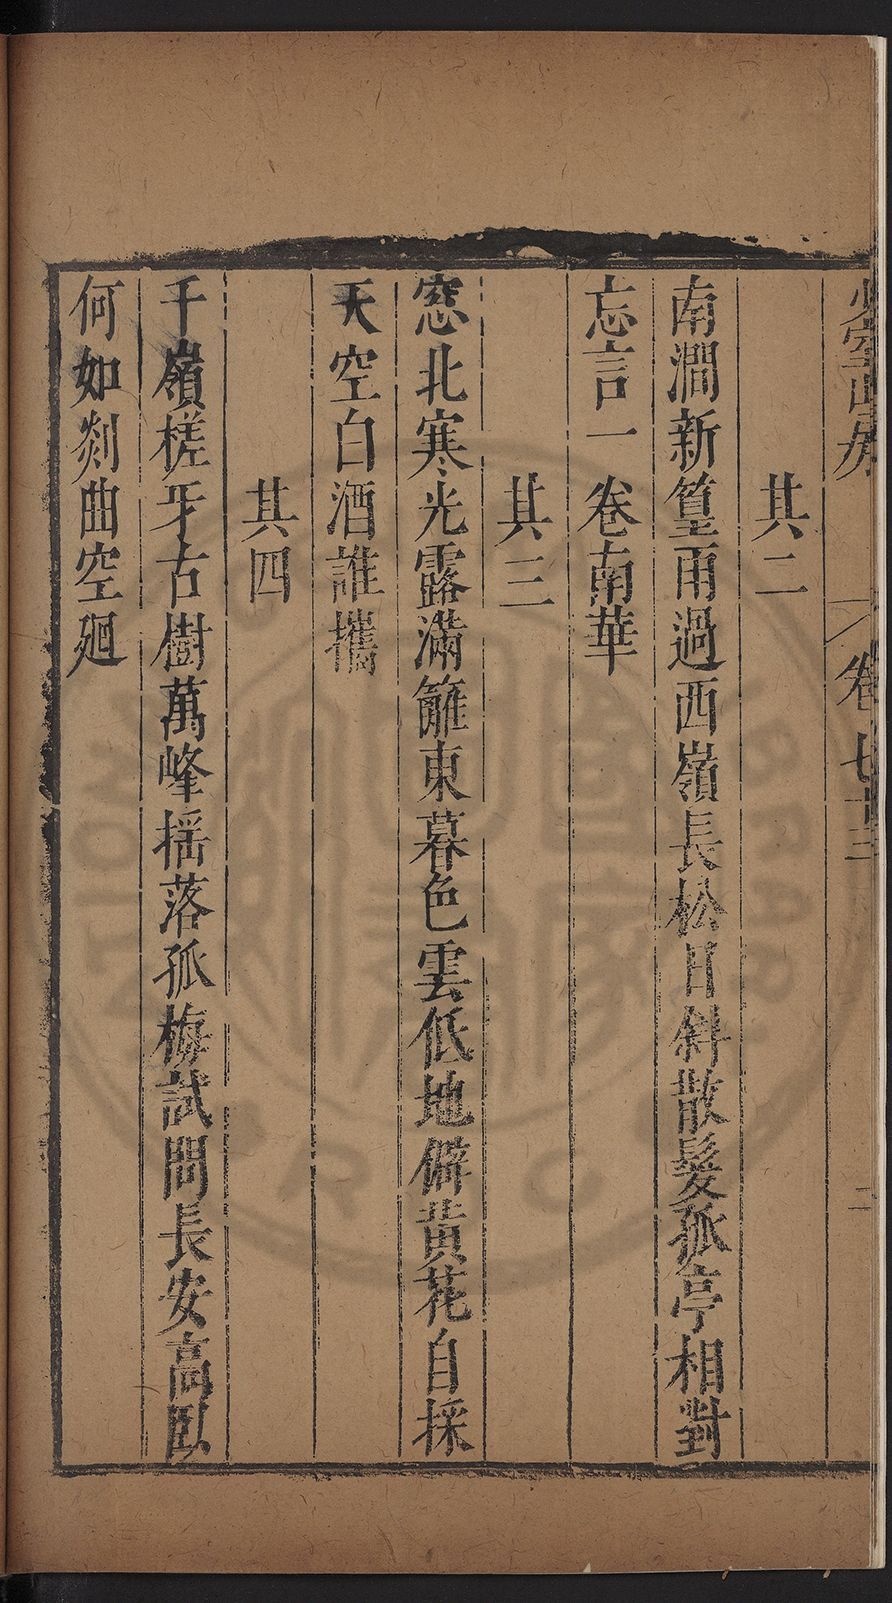 少室山房 卷七十三 二
其二
南澗新篁雨過西嶺長松日斜散髮孤亭相對
忘言一卷南華
其三
窓北寒光露滿籬東暮色雲低地僻黃花自採
天空白酒誰攜
其四
千嶺槎牙古樹萬峰搖落孤梅試問長安高臥
何如剡曲空廻